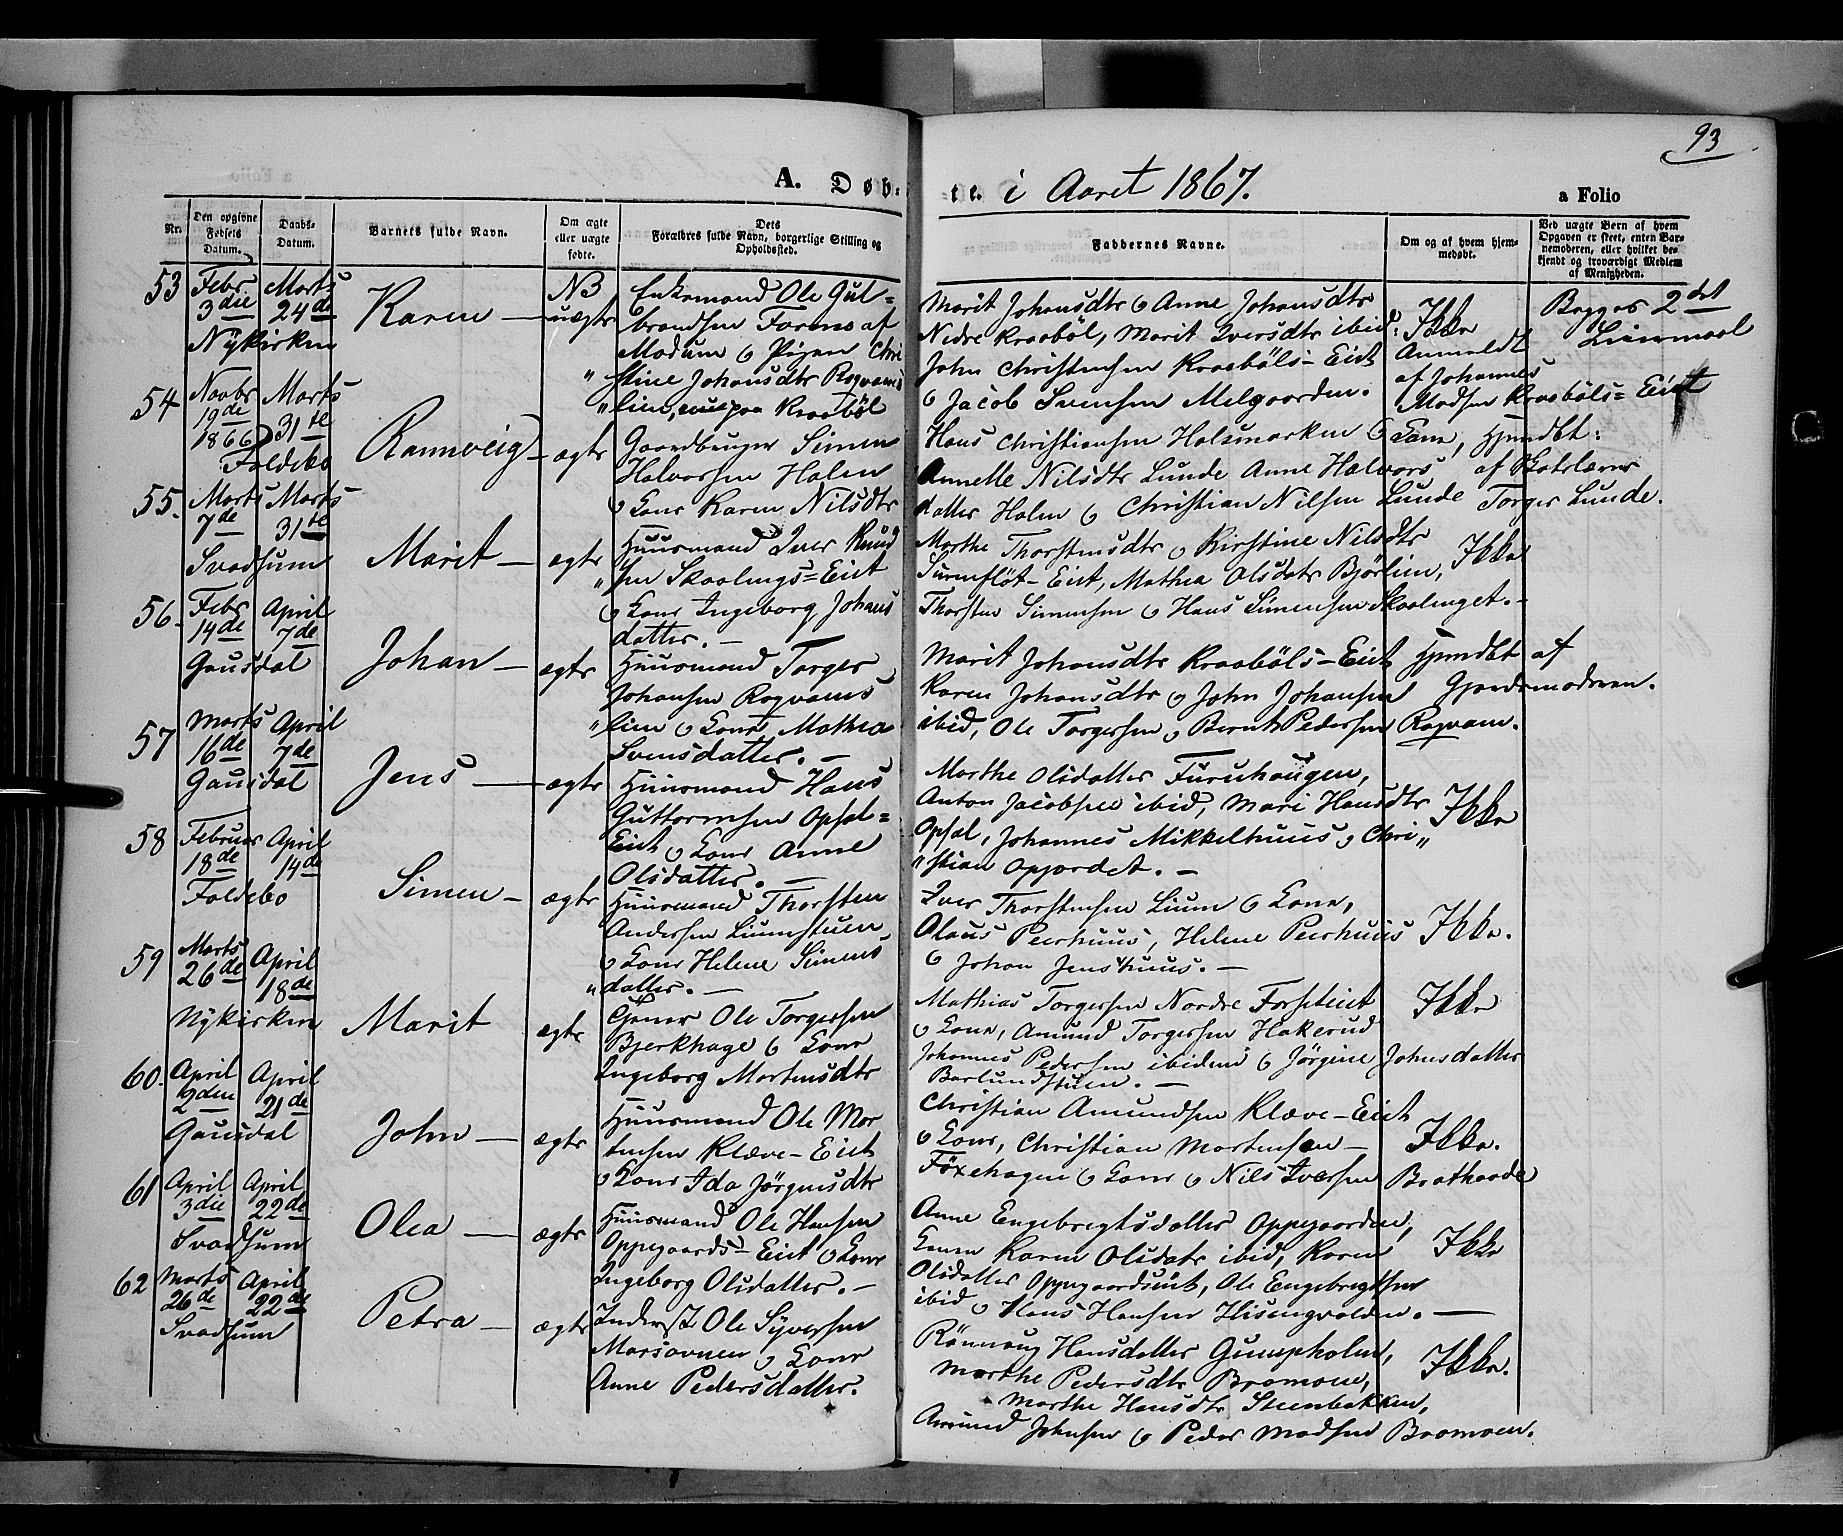 93
A. Døb-
te. i Aaret 1867.
a Folio
Nr.
Den opgivne
Fødsels
Datum.
Daabs-
Datum.
Barnets fulde Navn.
Om ægte
eller uægte
fødte.
Dets
Forældres fulde Navn, borgerlige Stilling og
Opholdssted.
Faddernes Navne.
Om og af hvem hjem-
medøbt.
Ved uægte Børn af hvem
Opgaven er skeet, enten Bar-
nemoderen, eller hvilket be-
kjendt og troværdigt Medlem
af Menigheden.
53
Febr
3die
Marts
24de
Nykirken
Karen
NB
uægte
Enkemand Ole Gul-
brandsen Forens af
Modum o Pigen Chri
"stine Johansdtr Rogvams
"lien, nu paa Kraabøl
Marit Johansdtr o Anne Johansdtr
Nedre Kraabøl, Marit Iversdtr ibid:
John Christensen Kraabøls-Eiet
o Jacob Svensen Melgaarden.
Ikke
Anmeldt
af Johannes
Madsen Kraabøls=Eiet
Begges 2det
Leiermaal
54
Novbr
19de
1866
Marts
31te
Foldebo
Rannveig
ægte
Gaardbruger Simen
Halvorsen Holen
o Kone Karen Nilsdtr
Hans Christiansen Holsmarken o Kone,
Annette Nilsdtr Lunde Anne Halvors
datter Holen o Christian Nilsen Lunde
Hjemdbt:
af Skolelærer
Torger Lunde.
55.
Marts
7de
Marts
31te
Svadsum
Marit
ægte
Huusmand Iver Knud
"sen Skaalings=Eiet
o Kone Ingeborg Johans
datter.
Marthe Thorstensdtr o Kirstine Nilsdtr
Surnflöt-Eiet, Mathea Olsdatr Bjørlien,
Thorsten Simensen o Hans Simensen Skaalinget.
Ikke
56.
Febr
14de
April
7de
Gausdal
Johan
ægte
Huusmand Torger
Johansen Rogvams
"lien o Kone Mathea
Svensdatter.
Marit Johansdtr Kraabøls-Eiet
Karen Johansdtr o John Johansen
ibid, Ole Torgersen o Bernt Pedersen Rogvam.
Hjemdbt af
Gjordemoderen.
57
Marts
16de
April
7de
Gausdal
Jens
ægte
Huusmand Hans
Guttormsen Opsal=
Eiet o Kone Anne
Olsdatter.
Marthe Olsdatter Furuhaugen,
Anton Jacobsen ibid, Mari Hansdtr
Opsal, Johannes Mikkelhuus o Chri"
"stian Opjordet.
Ikke
58
Februar
18de
April
14de
Foldebo
Simen
ægte
Huusmand Thorsten
Andersen Liumstuen
o Kone Helene Simens
"datter.
Iver Thorstensen Lium o Kone,
Olaus Peerhuus, Helene Peerhuus
o Johan Jenshuus.
Ikke.
59
Marts
26de
April
18de
Nykirken
Marit
ægte
Gjener Ole Torgersen
Bjerkhage o Kone
Ingeborg Mortensdtr
Mathias Torgersen Nordre Forseteiet
o Kone, Amund Torgersen Hakerud
Johannes Pedersen ibidem o Jørgine Johnsdatter
Barlundstuen.
Ikke
60.
April
2den
April
21de
Gausdal
John
ægte
Huusmand Ole Mor
tensen Klæve-Eiet
o Kone Ida Jørgensdtr
Christian Amundsen Klæve-Eiet
o Kone, Christian Mortensen
Føxehagen o Kone o Nils Iversen Brathaade
Ikke.
61
April
3die
April
22de
Svadsum
Olea
ægte
Huusmand Ole Hansen
Oppegaards-Eiet o Kone
Ingeborg Olsdatter.
Anne Engebregtsdatter Oppegaarden,
Konen Karen Olsdatr ibid, Karen
Olsdatter Oppegaardseiet, Ole Engebregtsen
ibid o Hans Hansen Hisingvolden.
Ikke
62
Marts
26de
April
22de
Svadsum
Petra
ægte
Inderst Ole Syversen
Morsovnen o Kone
Anne Pedersdatter.
Rönnaug Hansdatter Gumpholen,
Marthe Pedersdtr Bromoen,
Marthe Hansdtr Steenbakken,
Amund Johnsen o Peder Madsen Bromoen.
Ikke.